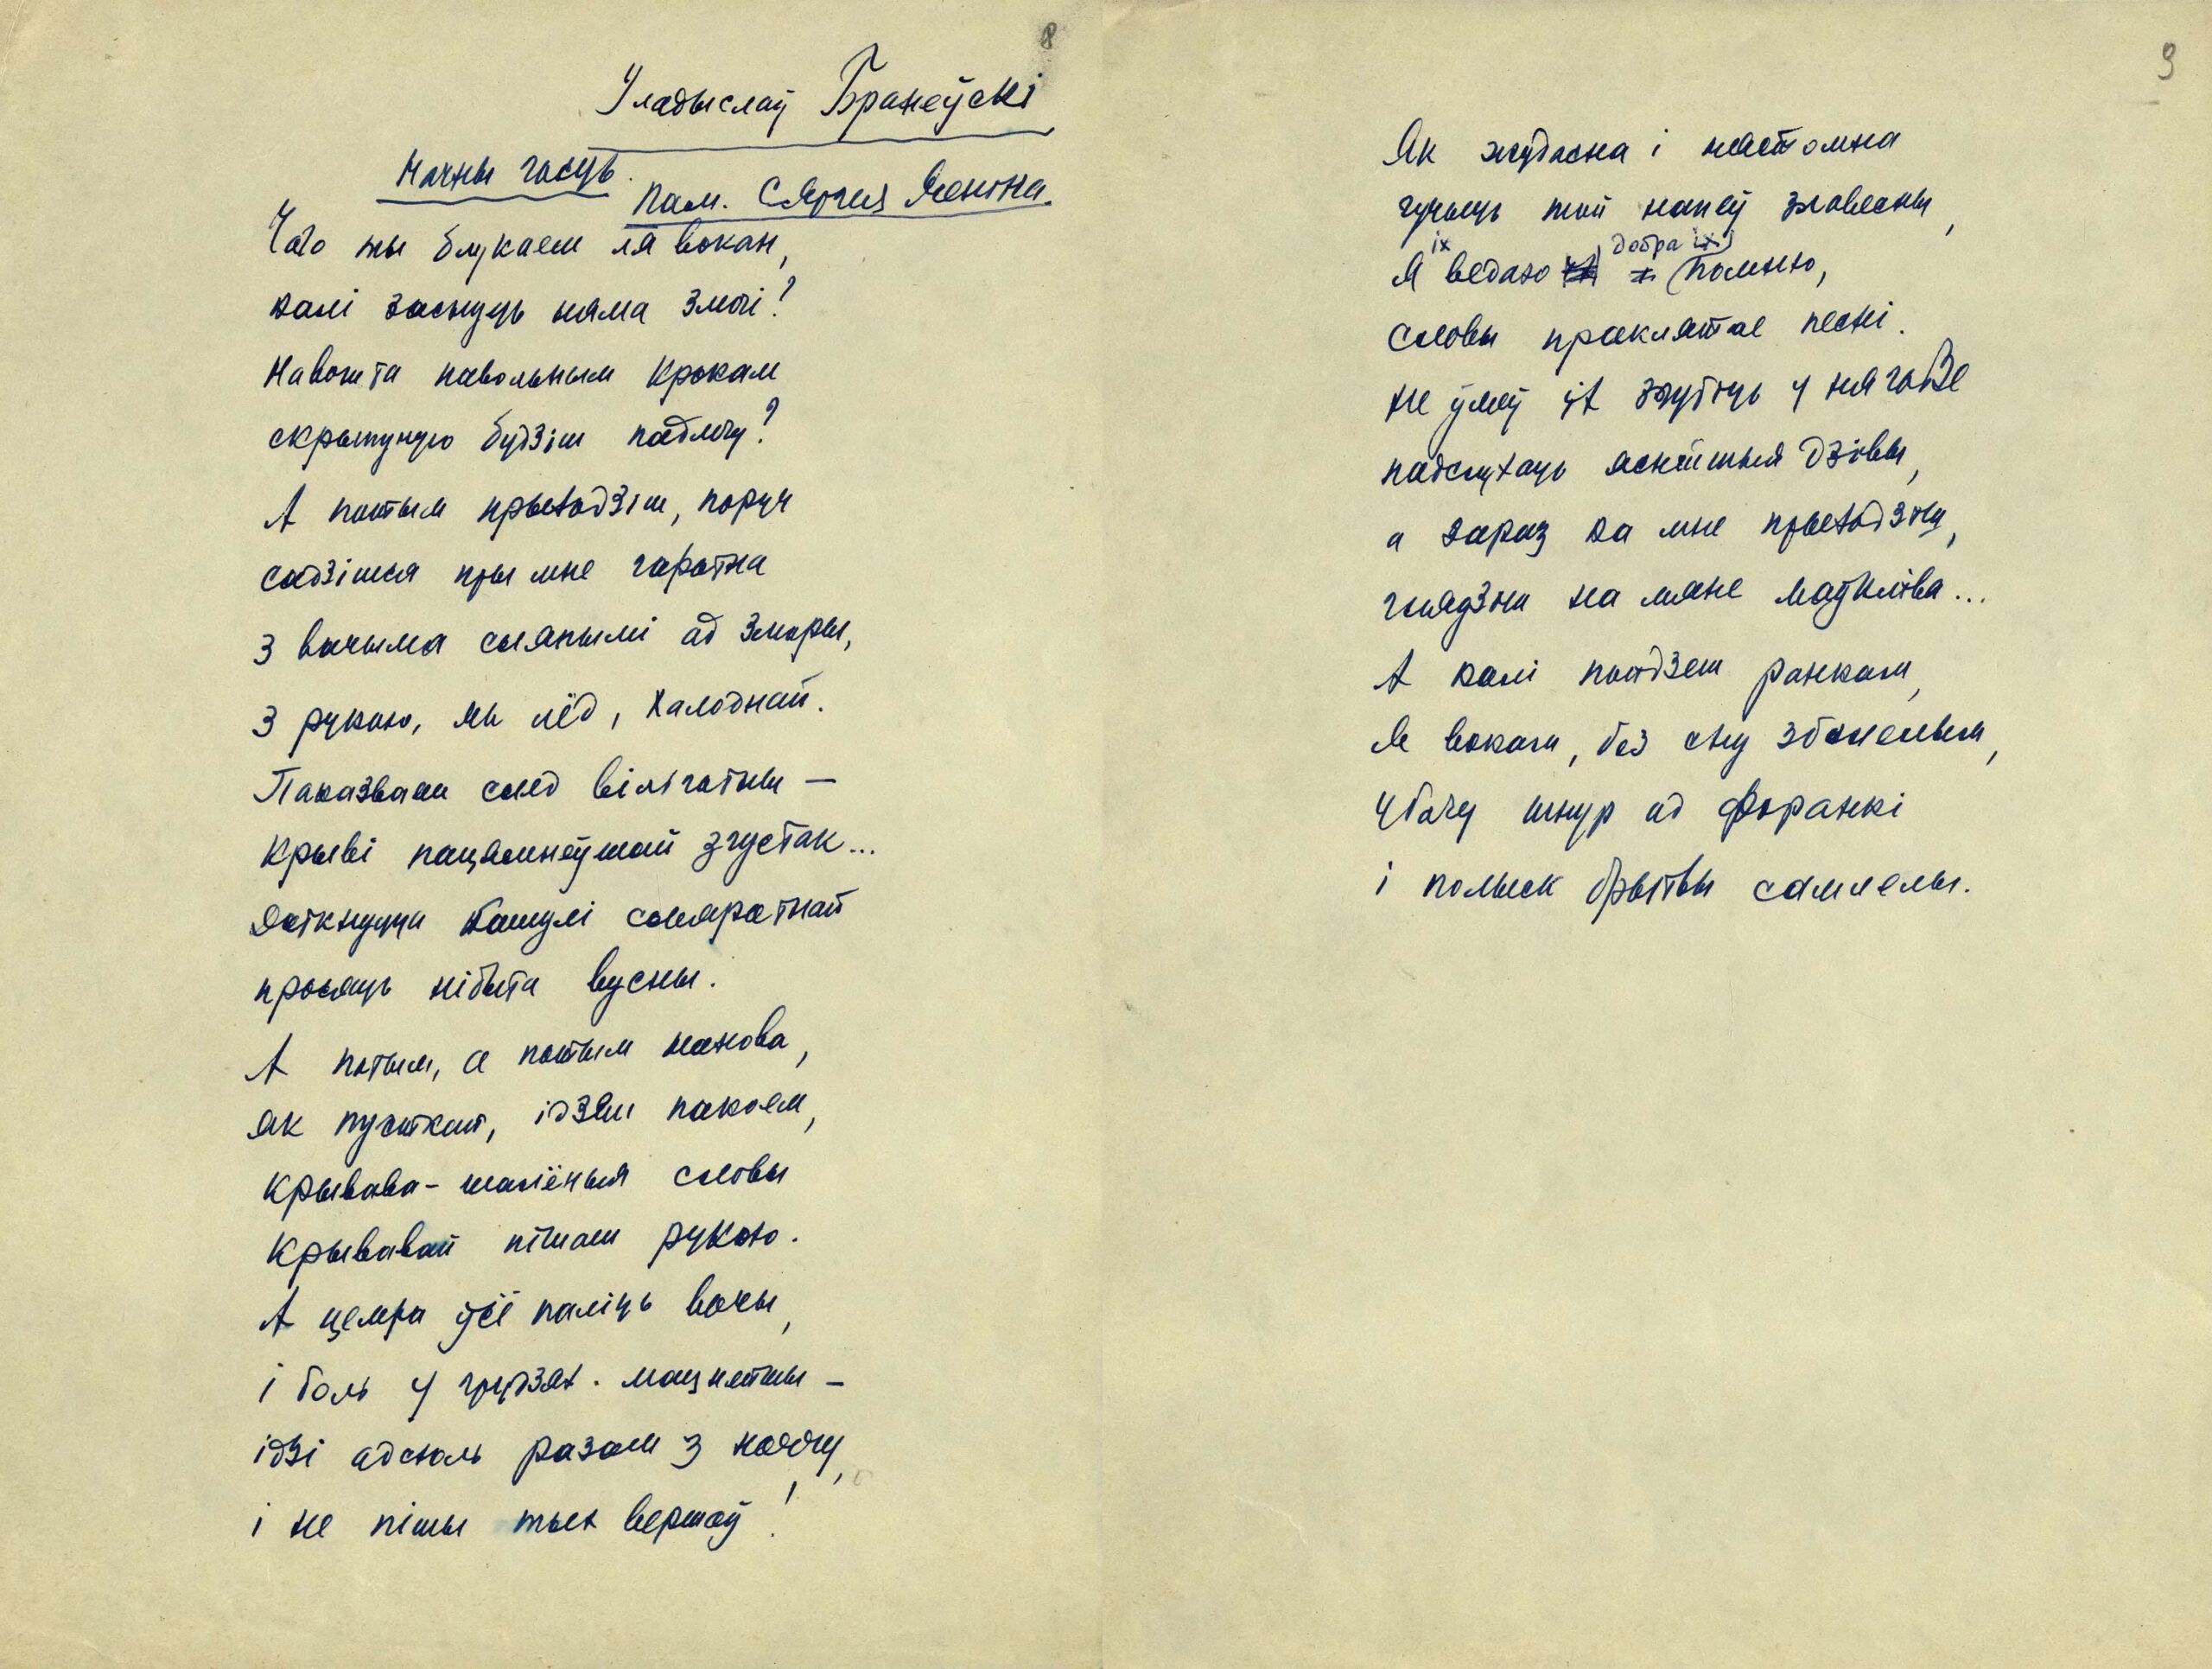 8
Уладыслаў Бранеўскі
Начны госць.
Пам. Сяргея Ясеніна.
Чаго ты блукаеш ля вокан,
калі заснуць няма змогі?
Навошта павольным крокам
скрыпучую будзіш падлогу?
А потым прыходзіш, поруч
садзішся пры мне гаротна
з вачыма сляпымі ад зморы,
з рукою, як лёд, халоднай.
Паказваеш след вільготны —
крыві пацямнеўшай згустак...
Даткнуцца кашулі смяротнай
просяць нібыта вусны.
А потым, а потым нанова,
як пусткай, ідзеш пакоем,
крывава-шалёныя словы
крывавай пішаш рукою.
А цемра ўсё паліць вочы,
і боль у грудзях мацнейшы —
ідзі адсюль разам з ноччу,
і не пішы тых вершаў!
9
Як жудасна і няўтомна
гучыць той напеў злавесны,
Я іх ведаю добра помню,
словы праклятае песні.
Не ўмеў іх згубіць у няго Ве
падслухаць яснейшыя дзівы,
а зараз да мне прыходзіш,
глядзіш на мяне маўкліва...
А калі пойдзеш ранкам,
Я вокам, без сну збялелым,
Убачу шнур ад фіранкі
і полыск брытвы самлелы.